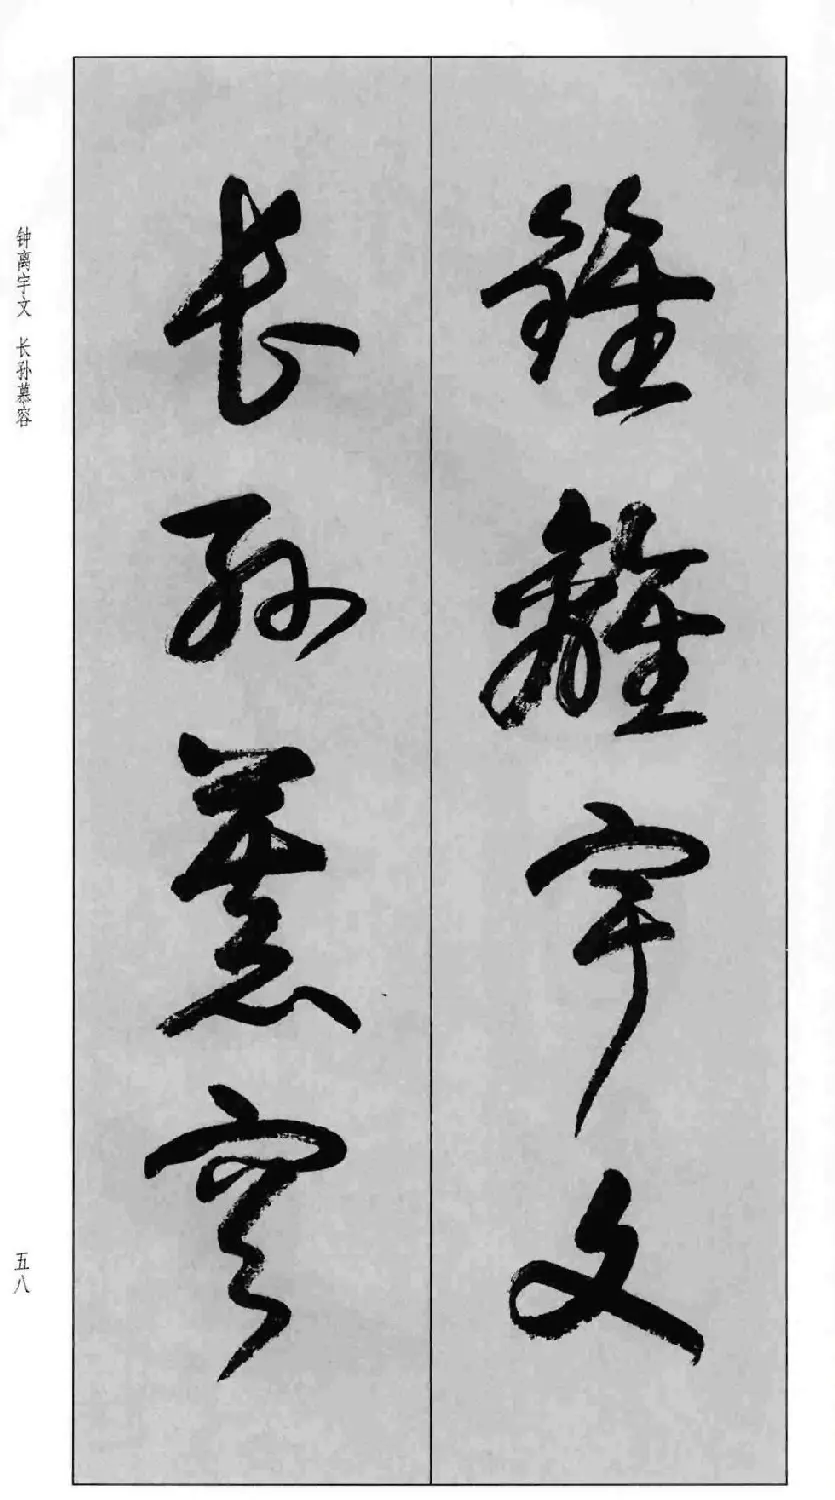 鍾離宇文
长孙慕容
钟离宇文 长孙慕容
五八